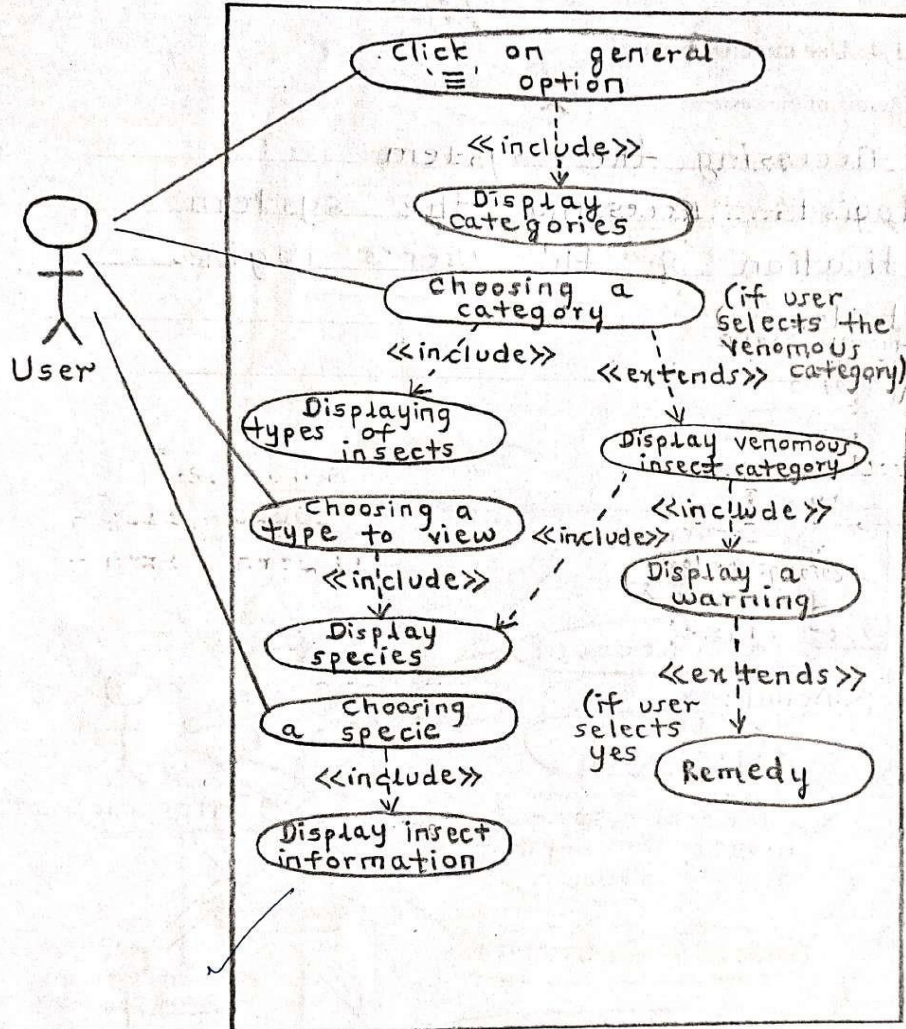 Click on general
'≡' option
<<include>>
Display
categories
Choosing a
category
(if user
selects the
venomous
category)
<<include>>
<<extends>>
User
Displaying
types of
insects
Display venomous
insect category
Choosing a
type to view
<<include>>
<<include>>
<<include>>
Display a
warning
Display
species
<<extends>>
(if user
selects
yes
Choosing
a specie
<<include>>
Remedy
Display insect
information